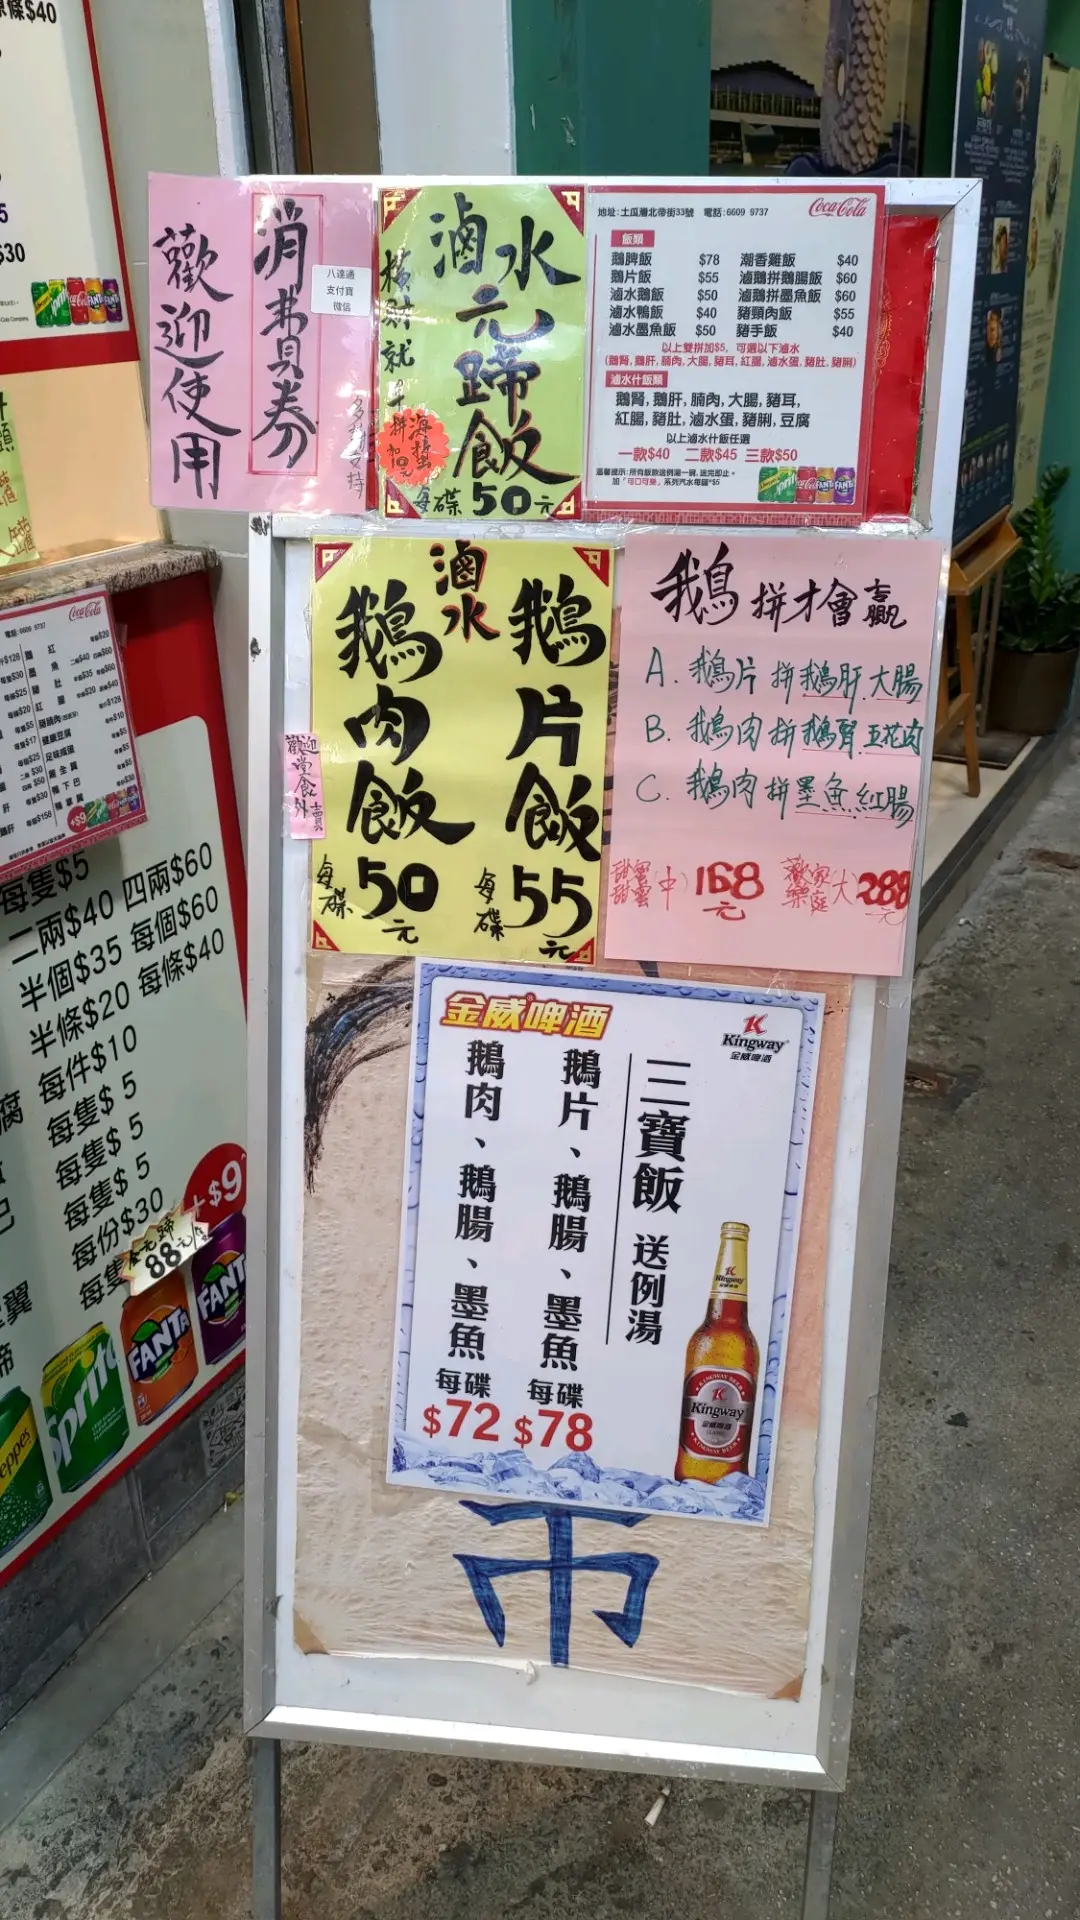 $40
$30
歡迎使用
消費券
八達通
支付寶
微信
橫財就手
滷水
元蹄飯
海蜇
拼加10元
每碟50元
地址:土瓜灣北帝街33號 電話:6609 9737
Coca-Cola
飯類
鵝髀飯 $78 潮香雞飯 $40
鵝片飯 $55 滷鵝拼鵝腸飯 $60
滷水鵝飯 $50 滷鵝拼墨魚飯 $60
滷水鴨飯 $40 豬頸肉飯 $55
滷水墨魚飯 $50 豬手飯 $40
以上雙拼加$5, 可選以下滷水
(鵝腎, 鵝肝, 腩肉, 大腸, 豬耳, 紅腸, 滷水蛋, 豬肚, 豬脷)
滷水什飯類
鵝腎, 鵝肝, 腩肉, 大腸, 豬耳,
紅腸, 豬肚, 滷水蛋, 豬脷, 豆腐
以上滷水什飯任選
一款$40 二款$45 三款$50
溫馨提示:所有飯款送例湯一碗, 送完即止。
加「可口可樂」系列汽水每罐+$5
滷水
鵝肉飯
每碟50元
鵝片飯
每碟55元
歡迎堂食外賣
我鳥拼才會贏
A. 鵝片拼鵝肝.大腸
B. 鵝肉拼鵝腎.五花肉
C. 鵝肉拼墨魚.紅腸
甜甜蜜蜜(中)168元
歡樂家庭(大)288元
金威啤酒
Kingway
金威啤酒
三寶飯 送例湯
鵝片、鵝腸、墨魚
每碟
$78
鵝肉、鵝腸、墨魚
每碟
$72
Kingway
Kingway
金威啤酒
Coca-Cola
電話:6609 9737
每隻$5
二兩$40 四兩$60
半個$35 每個$60
半條$20 每條$40
每件$10
每隻$5
每隻$5
每隻$5
每份$30
每隻
88元
+$9
FANTA
FANTA
Sprite
Schweppes